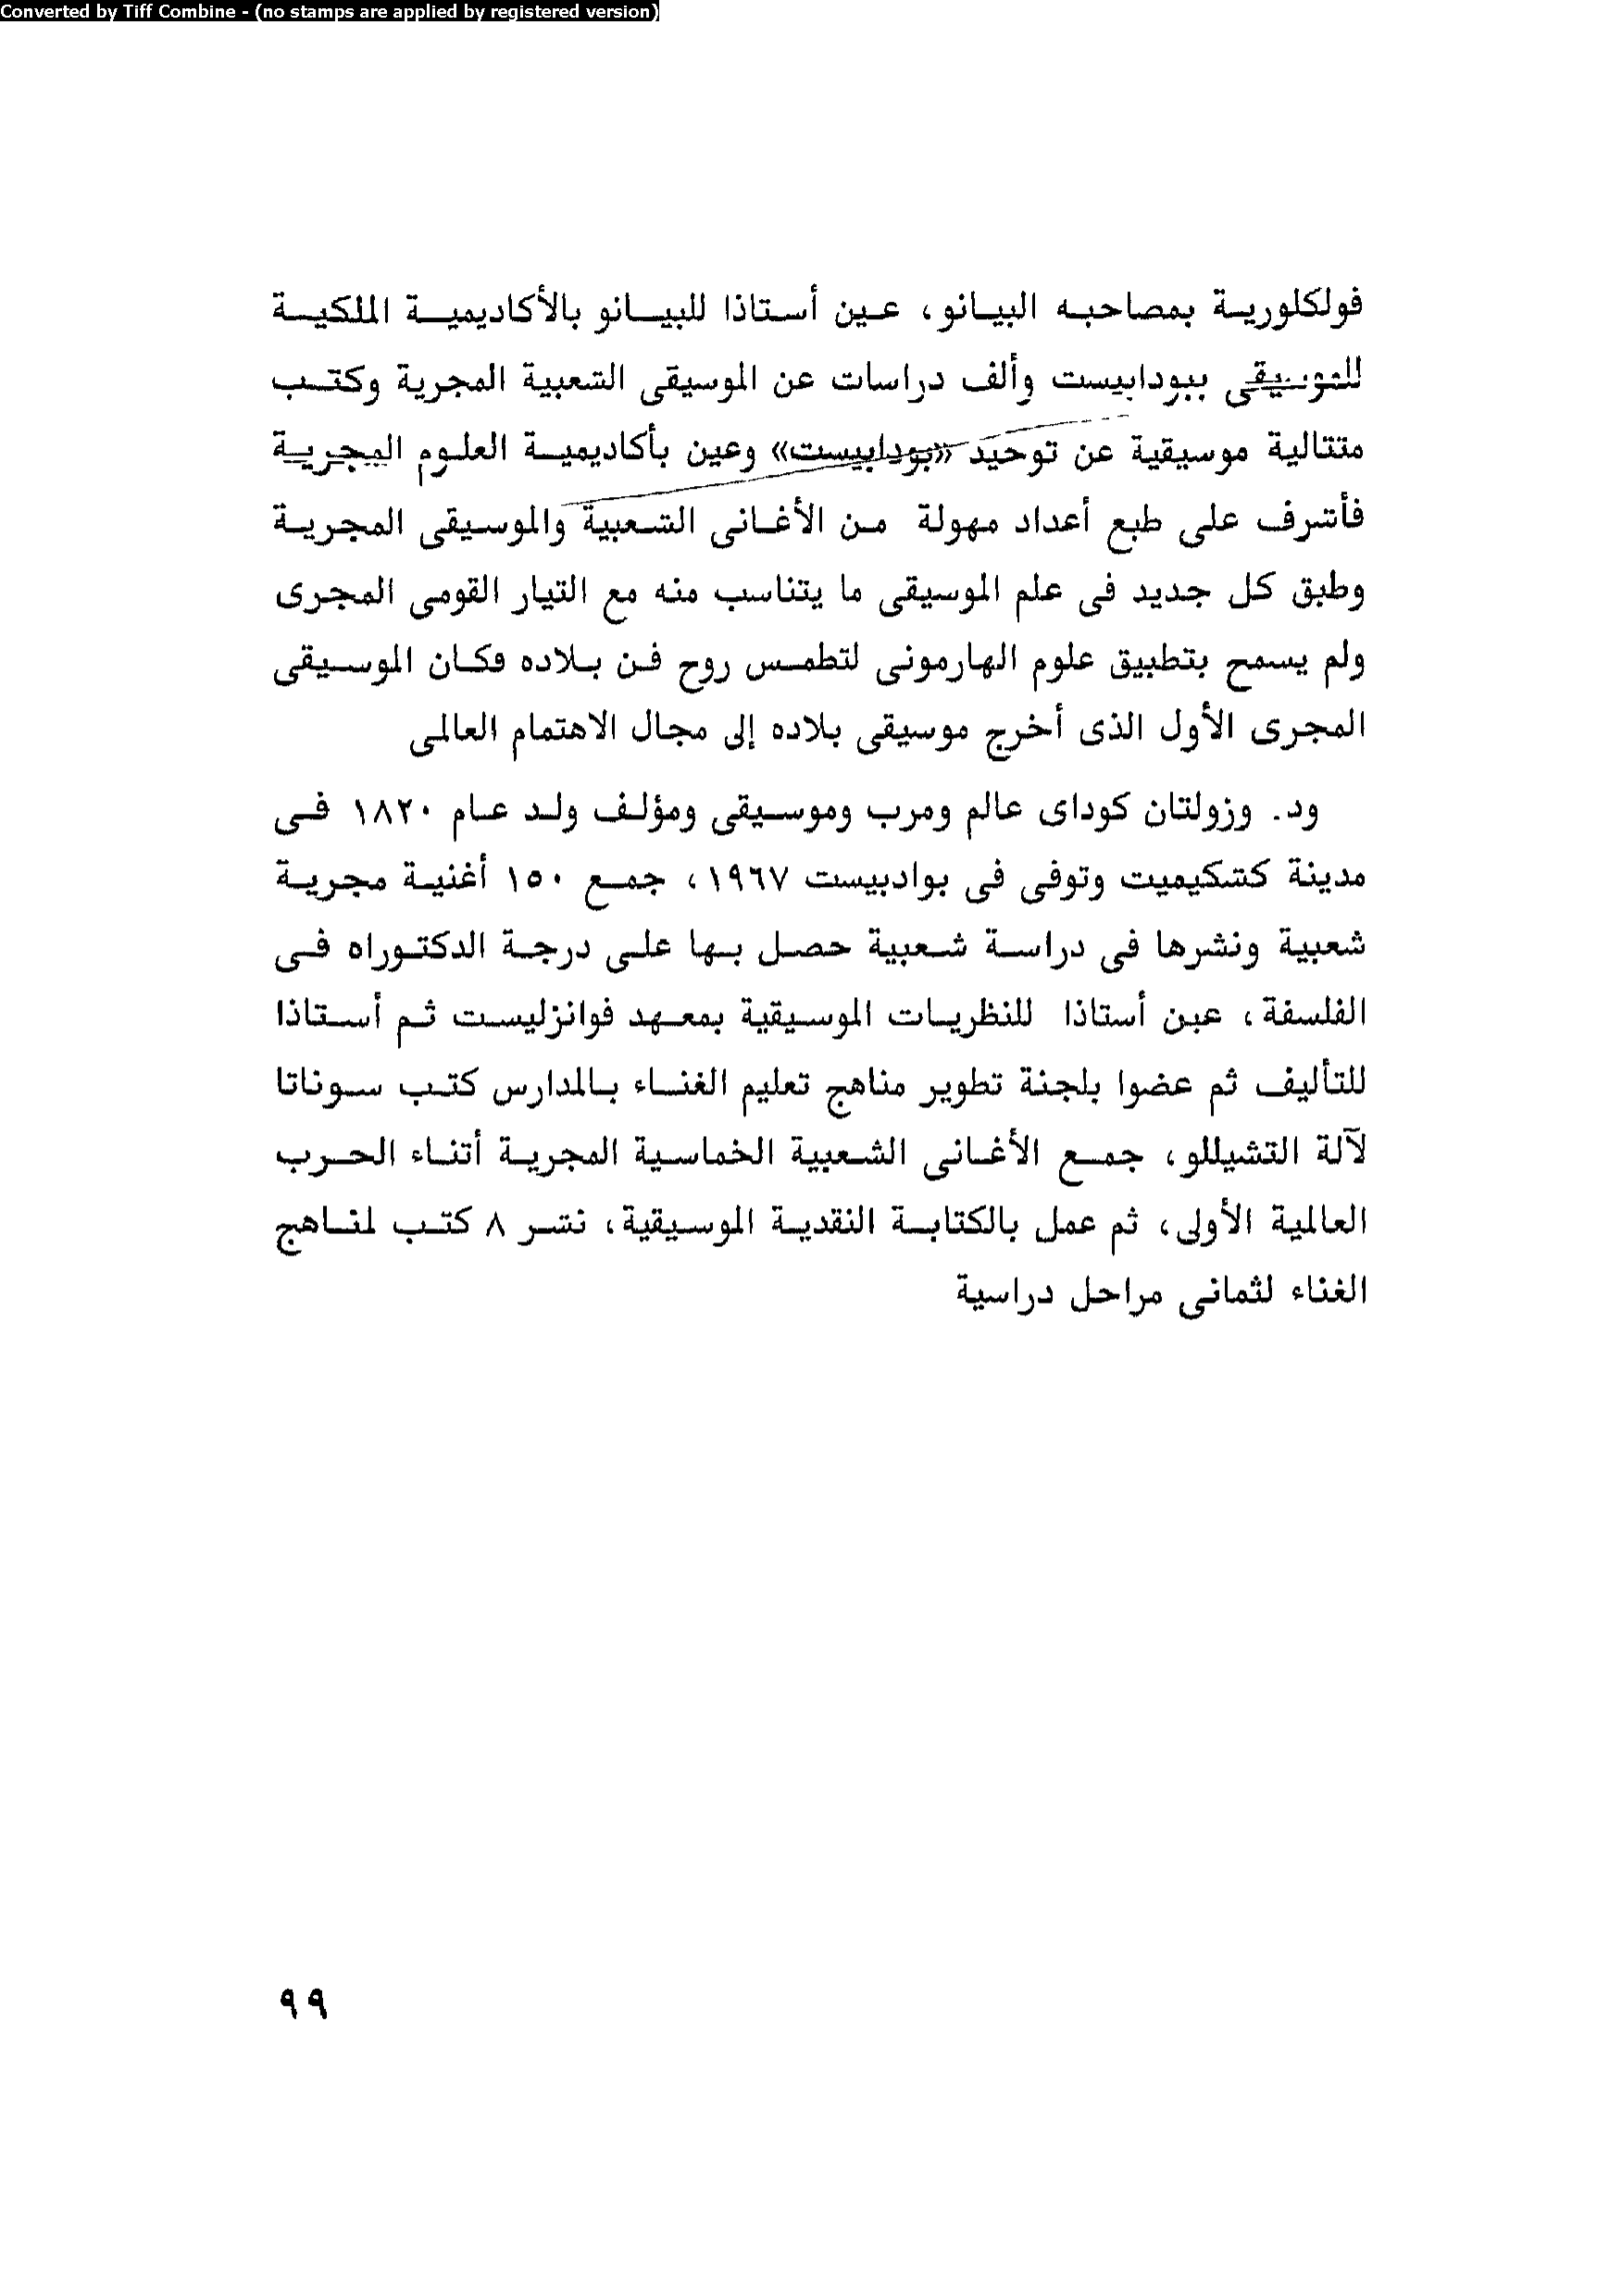 Converted by Tiff Combine - (no stamps are applied by registered version)
فولكلورية بمصاحبه البيانو، عين أستاذا للبيانو بالأكاديمية الملكية
للموسيقى ببودابيست وألف دراسات عن الموسيقى الشعبية المجرية وكتب
متتالية موسيقية عن توحيد «بودابيست» وعين بأكاديمية العلوم المجرية
فأشرف على طبع أعداد مهولة من الأغانى الشعبية والموسيقى المجرية
وطبق كل جديد فى علم الموسيقى ما يتناسب منه مع التيار القومى المجرى
ولم يسمح بتطبيق علوم الهارمونى لتطمس روح فن بلاده فكان الموسيقى
المجرى الأول الذى أخرج موسيقى بلاده إلى مجال الاهتمام العالمى
ود. وزولتان كوداى عالم ومرب وموسيقى ومؤلف ولد عام ١٨٢٠ فى
مدينة كشكيميت وتوفى فى بوادبيست ١٩٦٧، جمع ١٥٠ أغنية مجرية
شعبية ونشرها فى دراسة شعبية حصل بها على درجة الدكتوراه فى
الفلسفة، عبن أستاذا للنظريات الموسيقية بمعهد فوانزليست ثم أستاذا
للتأليف ثم عضوا بلجنة تطوير مناهج تعليم الغناء بالمدارس كتب سوناتا
لآلة التشيللو، جمع الأغانى الشعبية الخماسية المجرية أثناء الحرب
العالمية الأولى، ثم عمل بالكتابة النقدية الموسيقية، نشر ٨ كتب لمناهج
الغناء لثمانى مراحل دراسية
٩٩